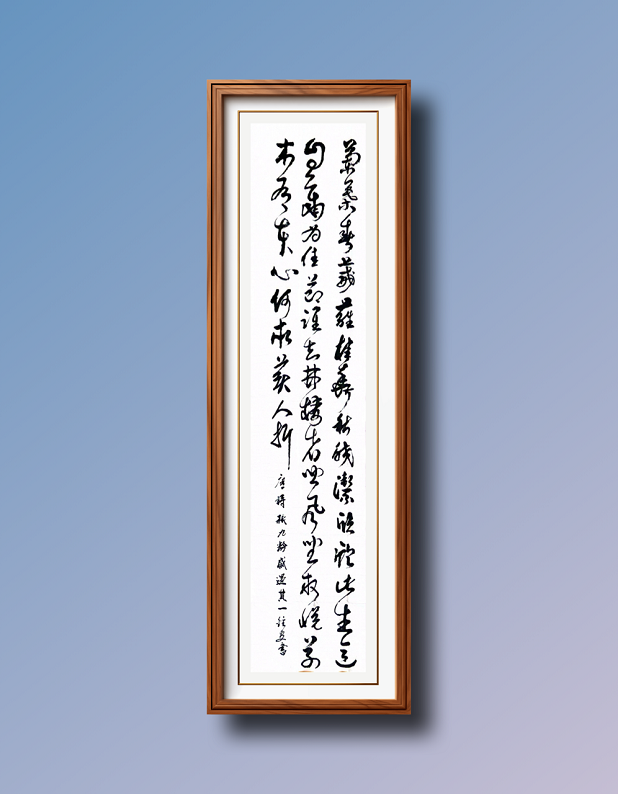 蘭葉春葳蕤桂華秋皎潔欣欣此生意
自爾为佳節誰知林棲者聞風坐相悦草
木有本心何求美人折
唐詩張九齡感遇其一書